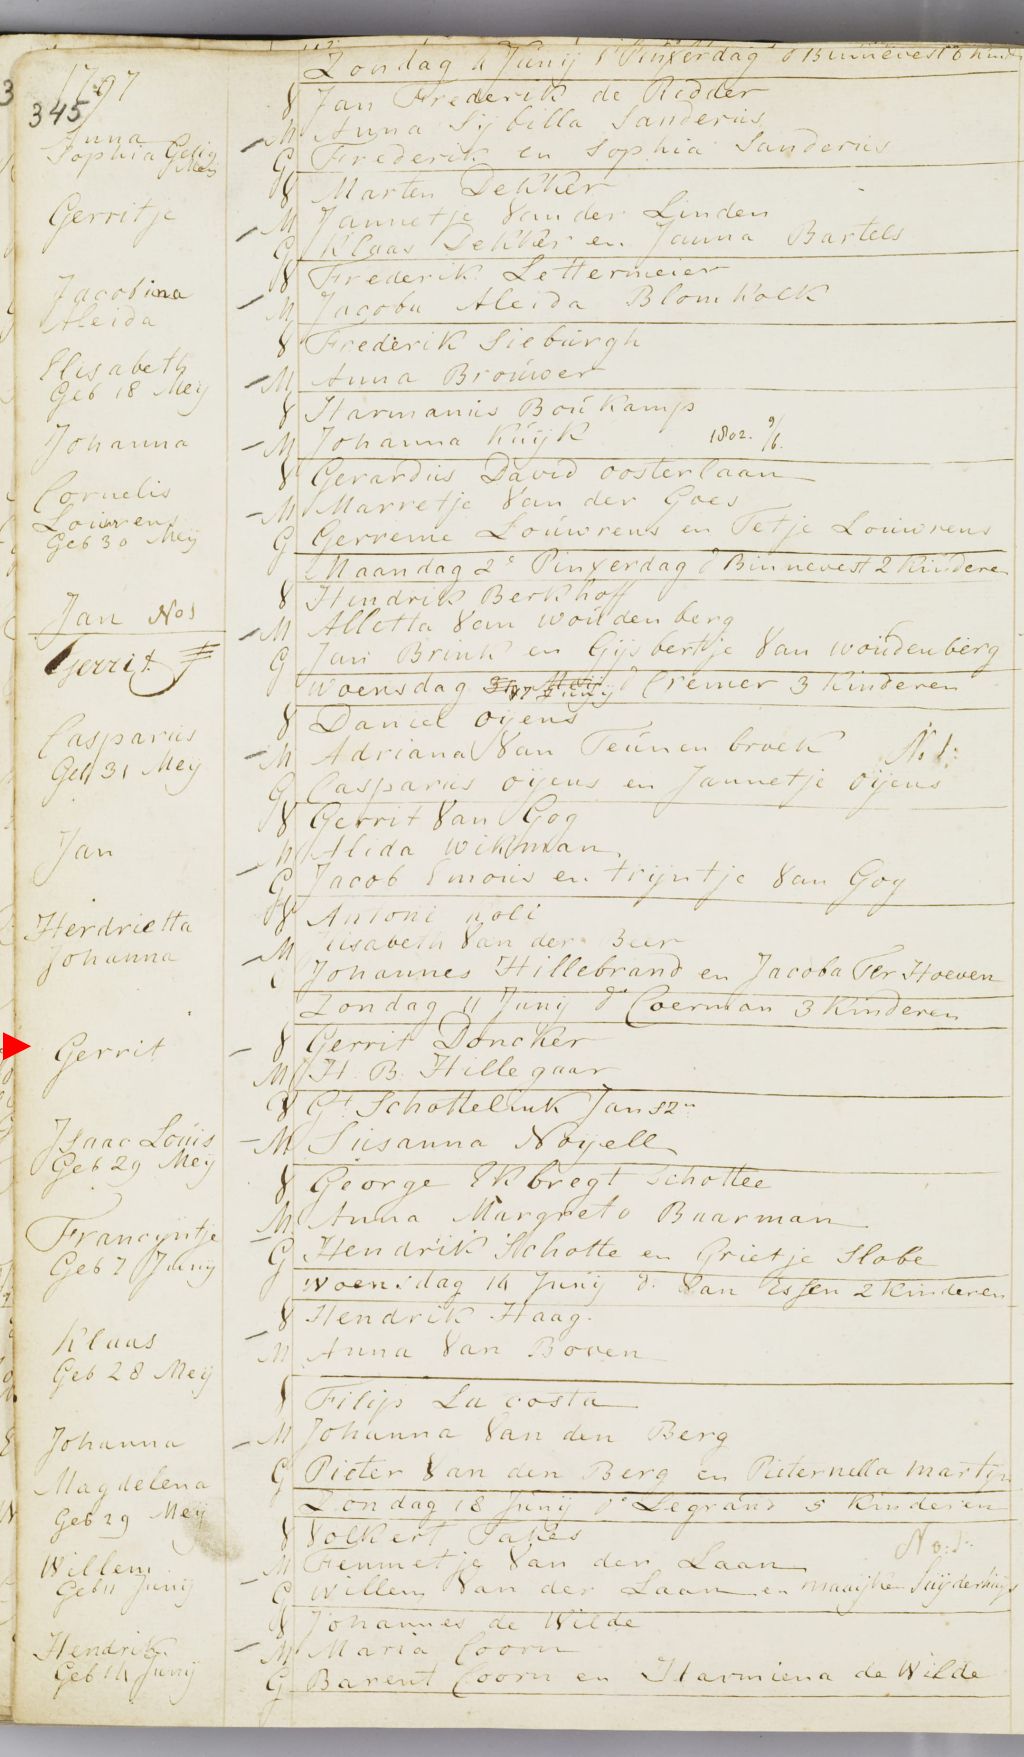 1797
345
Zondag 4 Junij 1e Pinxterdag d Binnevest 6 kinde
V Jan Frederik de Ridder
Anna
M Anna Sijbilla Sanderus
Sophia
G Frederik en Sophia Sanderus
V Marten Dekker
Gerritje
M Jannetje Van der Linden
G Klaas Dekker en Janna Bartels
V Frederik Lettermeier
Jacobina
M Jacoba Aleida Blomkolk
Aleida
V Frederik Sieburgh
Elisabeth
M Anna Brouwer
Geb 18 Meij
V Harmanus Boukamp
Johanna
M Johanna Kuijk 1802. 9/6.
V Gerardus David oosterlaan
Cornelis
M Marretje Van der Goes
Louwrens
Geb 30 Meij
G Gerreme Louwrens en Tetje Louwrens
Maandag 2e Pinxterdag d Binnevest 2 Kindere
V Hendrik Berkhoff
Jan No 1
M Alletta Van woudenberg
Gerrit
G Jan Brink en Gijsbertje Van woudenberg
woensdag 7 Junij d Cremer 3 Kinderen
V Daniel oijens
Casparus
M Adriana Van Teunenbroek No 1:
Geb 31 Meij
G Casparus oijens en Jannetje oijens
V Gerrit Van Gog
Jan
M Alida wikman
G Jacob Simons en trijntje Van Gog
V Antoni Koli
Herdrietta
M Elisabeth Van der Beer
Johanna
G Johannes Hillebrand en Jacoba Ter Hoeven
Zondag 11 Junij ds Coerman 3 Kinderen
Gerrit
V Gerrit Doncker
M H. B. Hillegaar
V Gt Schottelink Janszn
Isaac Louis
M Susanna Noyell
Geb 29 Meij
V George Ekbregt Schottee
Francijntje
M Anna Margreta Baarman
Geb 7 Junij
G Hendrik Schotte en Grietje Slobe
woensdag 14 Junij d: Van Essen 2 kinderen
V Hendrik Haag.
Klaas
M Anna Van Boven
Geb 28 Meij
V Filip La costa
Johanna
M Johanna Van den Berg
Magdelena
G Pieter Van den Berg en Pieternella Martijn
Geb 29 Meij
Zondag 18 Junij ds Legrand 5 Kinderen
V Volkert Takes No: 1:
Willem
M Femmetje Van der Laan
Geb 11 Junij
G Willem Van der Laan en maaijke Suijderhuijs
V Johannes de Wilde
Hendrik
M Maria Coorn
Geb 14 Junij
G Barent Coorn en Harmiena de Wilde